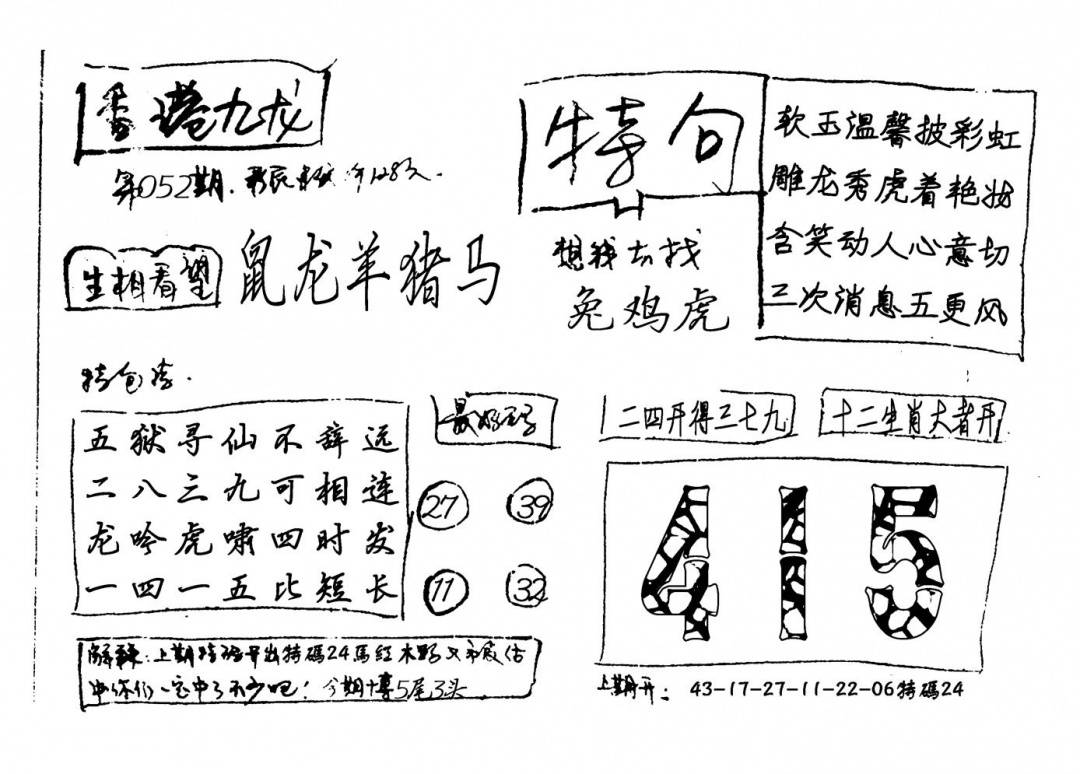 香港九龙
第052期.
生相看望
鼠龙羊猪马
特句
想我去找
兔鸡虎
软玉温馨披彩虹
雕龙秀虎着艳妆
含笑动人心意切
三次消息五更风
特包括.
五狱寻仙不辞远
二八三九可相连
龙吟虎啸四时发
一四一五比短长
最好码
27 39
11 32
二四开得三七九
十二生肖大者开
415
解释:上期特码开出特碼24馬红木野又被你估
中你们一定中了不少吧!今期博5尾3头
上期开: 43-17-27-11-22-06特碼24